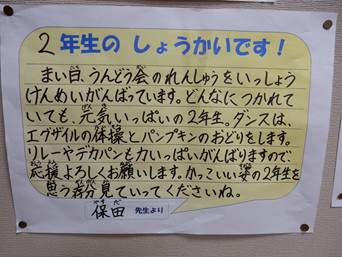 2年生の しょうかいです！
まい日、うんどう会のれんしゅうをいっしょう
けんめいがんばっています。どんなにつかれて
いても、元気いっぱいの2年生。ダンスは、
エグザイルの体操とパンプキンのおどりをします。
リレーやデカパンも力いっぱいがんばりますので、
応援よろしくお願いします。かっこいい姿の2年生を
思う存分見ていってくださいね。
保田 先生より